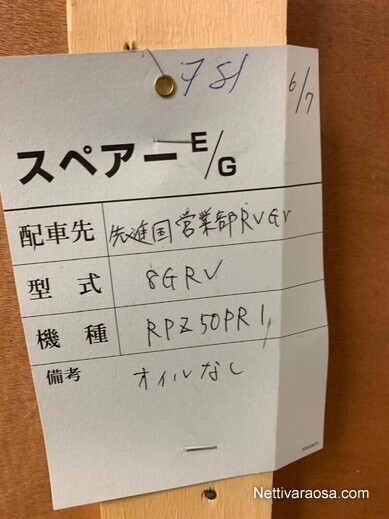 781
6/7
スペアー E/G
配車先 先進国営業部RVGr
型式 8GRV
機種 RPZ50PR1
備考 オイルなし
Nettivaraosa.com